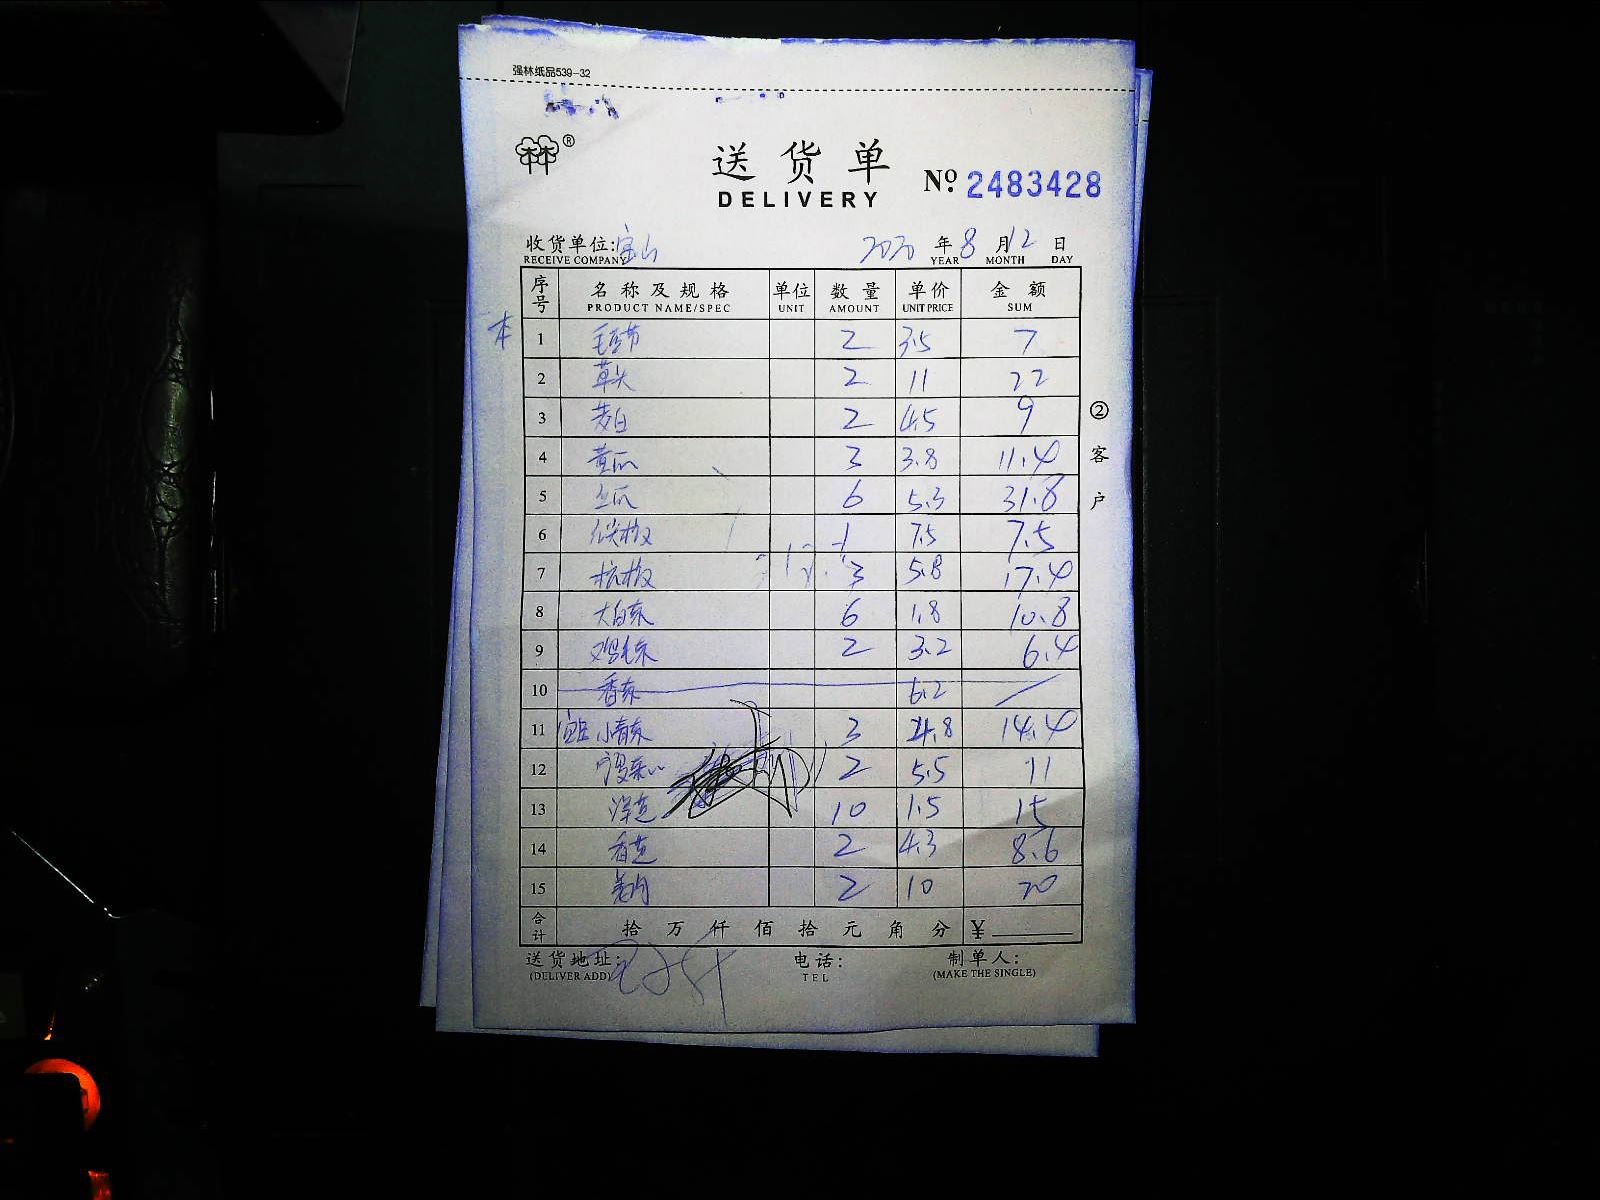 强林纸品539-32
林林®
送货单
DELIVERY
№ 2483428
收货单位:宝山 2020 年 8 月 12 日
RECEIVE COMPANY YEAR MONTH DAY
序号 名称及规格 单位 数量 单价 金额
PRODUCT NAME/SPEC UNIT AMOUNT UNIT PRICE SUM
1 毛豆节 2 3.5 7
2 草头 2 11 22
3 茭白 2 4.5 9
4 黄瓜 3 3.8 11.4
5 丝瓜 6 5.3 31.8
6 尖椒 1 7.5 7.5
7 杭椒 3 5.8 17.4
8 大白菜 6 1.8 10.8
9 鸡毛菜 2 3.2 6.4
10 香菜 6.2
11 小青菜 3 4.8 14.4
12 2 5.5 11
13 洋芝 10 1.5 15
14 香芝 2 4.3 8.6
15 姜肉 2 10 20
② 客户
合计 拾万仟佰拾元角分 ¥
送货地址: 电话: 制单人:
(DELIVER ADD) TEL (MAKE THE SINGLE)